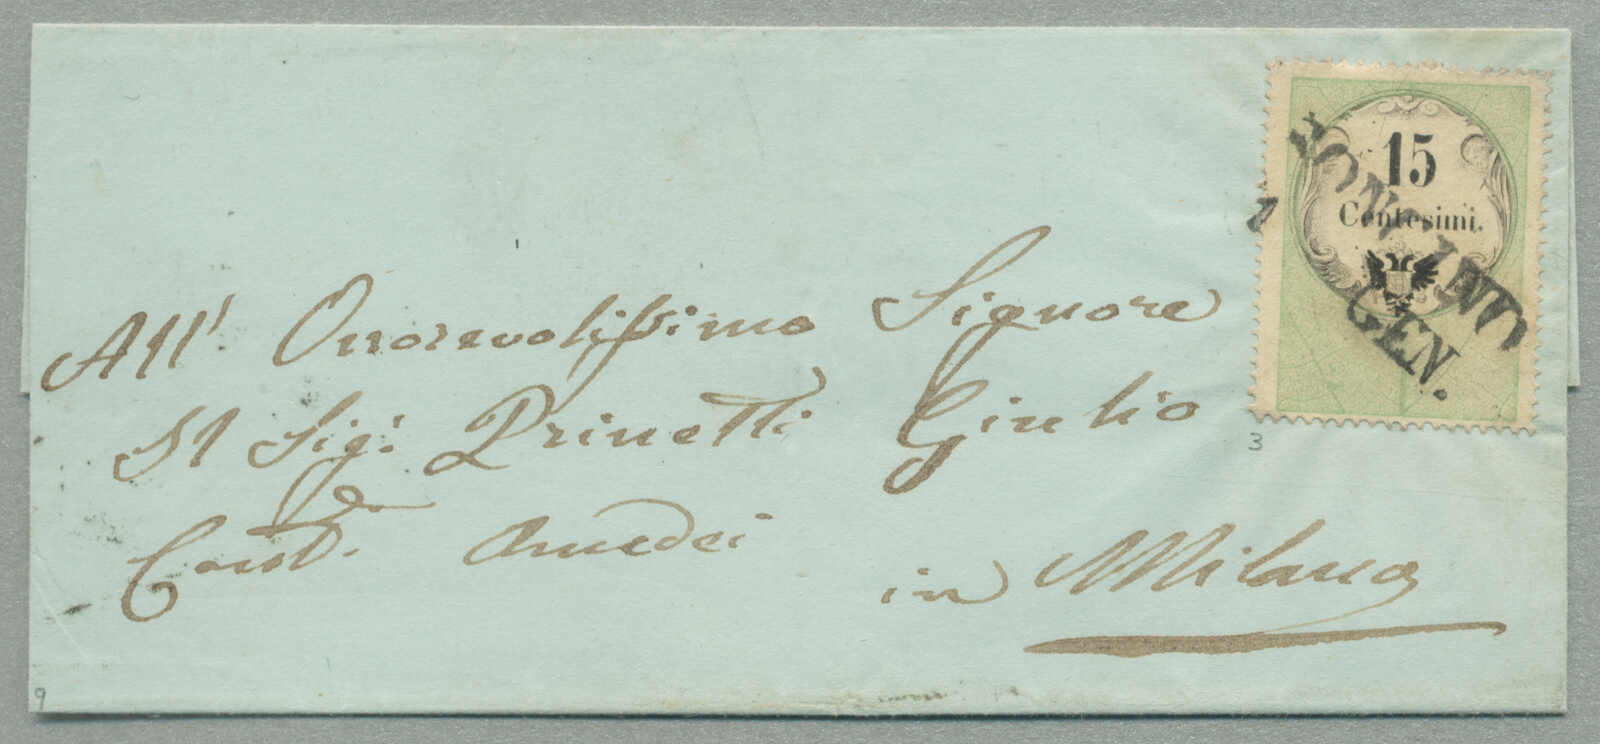 15
Centesimi.
GEN.
All' Onorevolissimo Signore
Il Sigr Prinetti Giulio
Amedei
in Milano
3
9